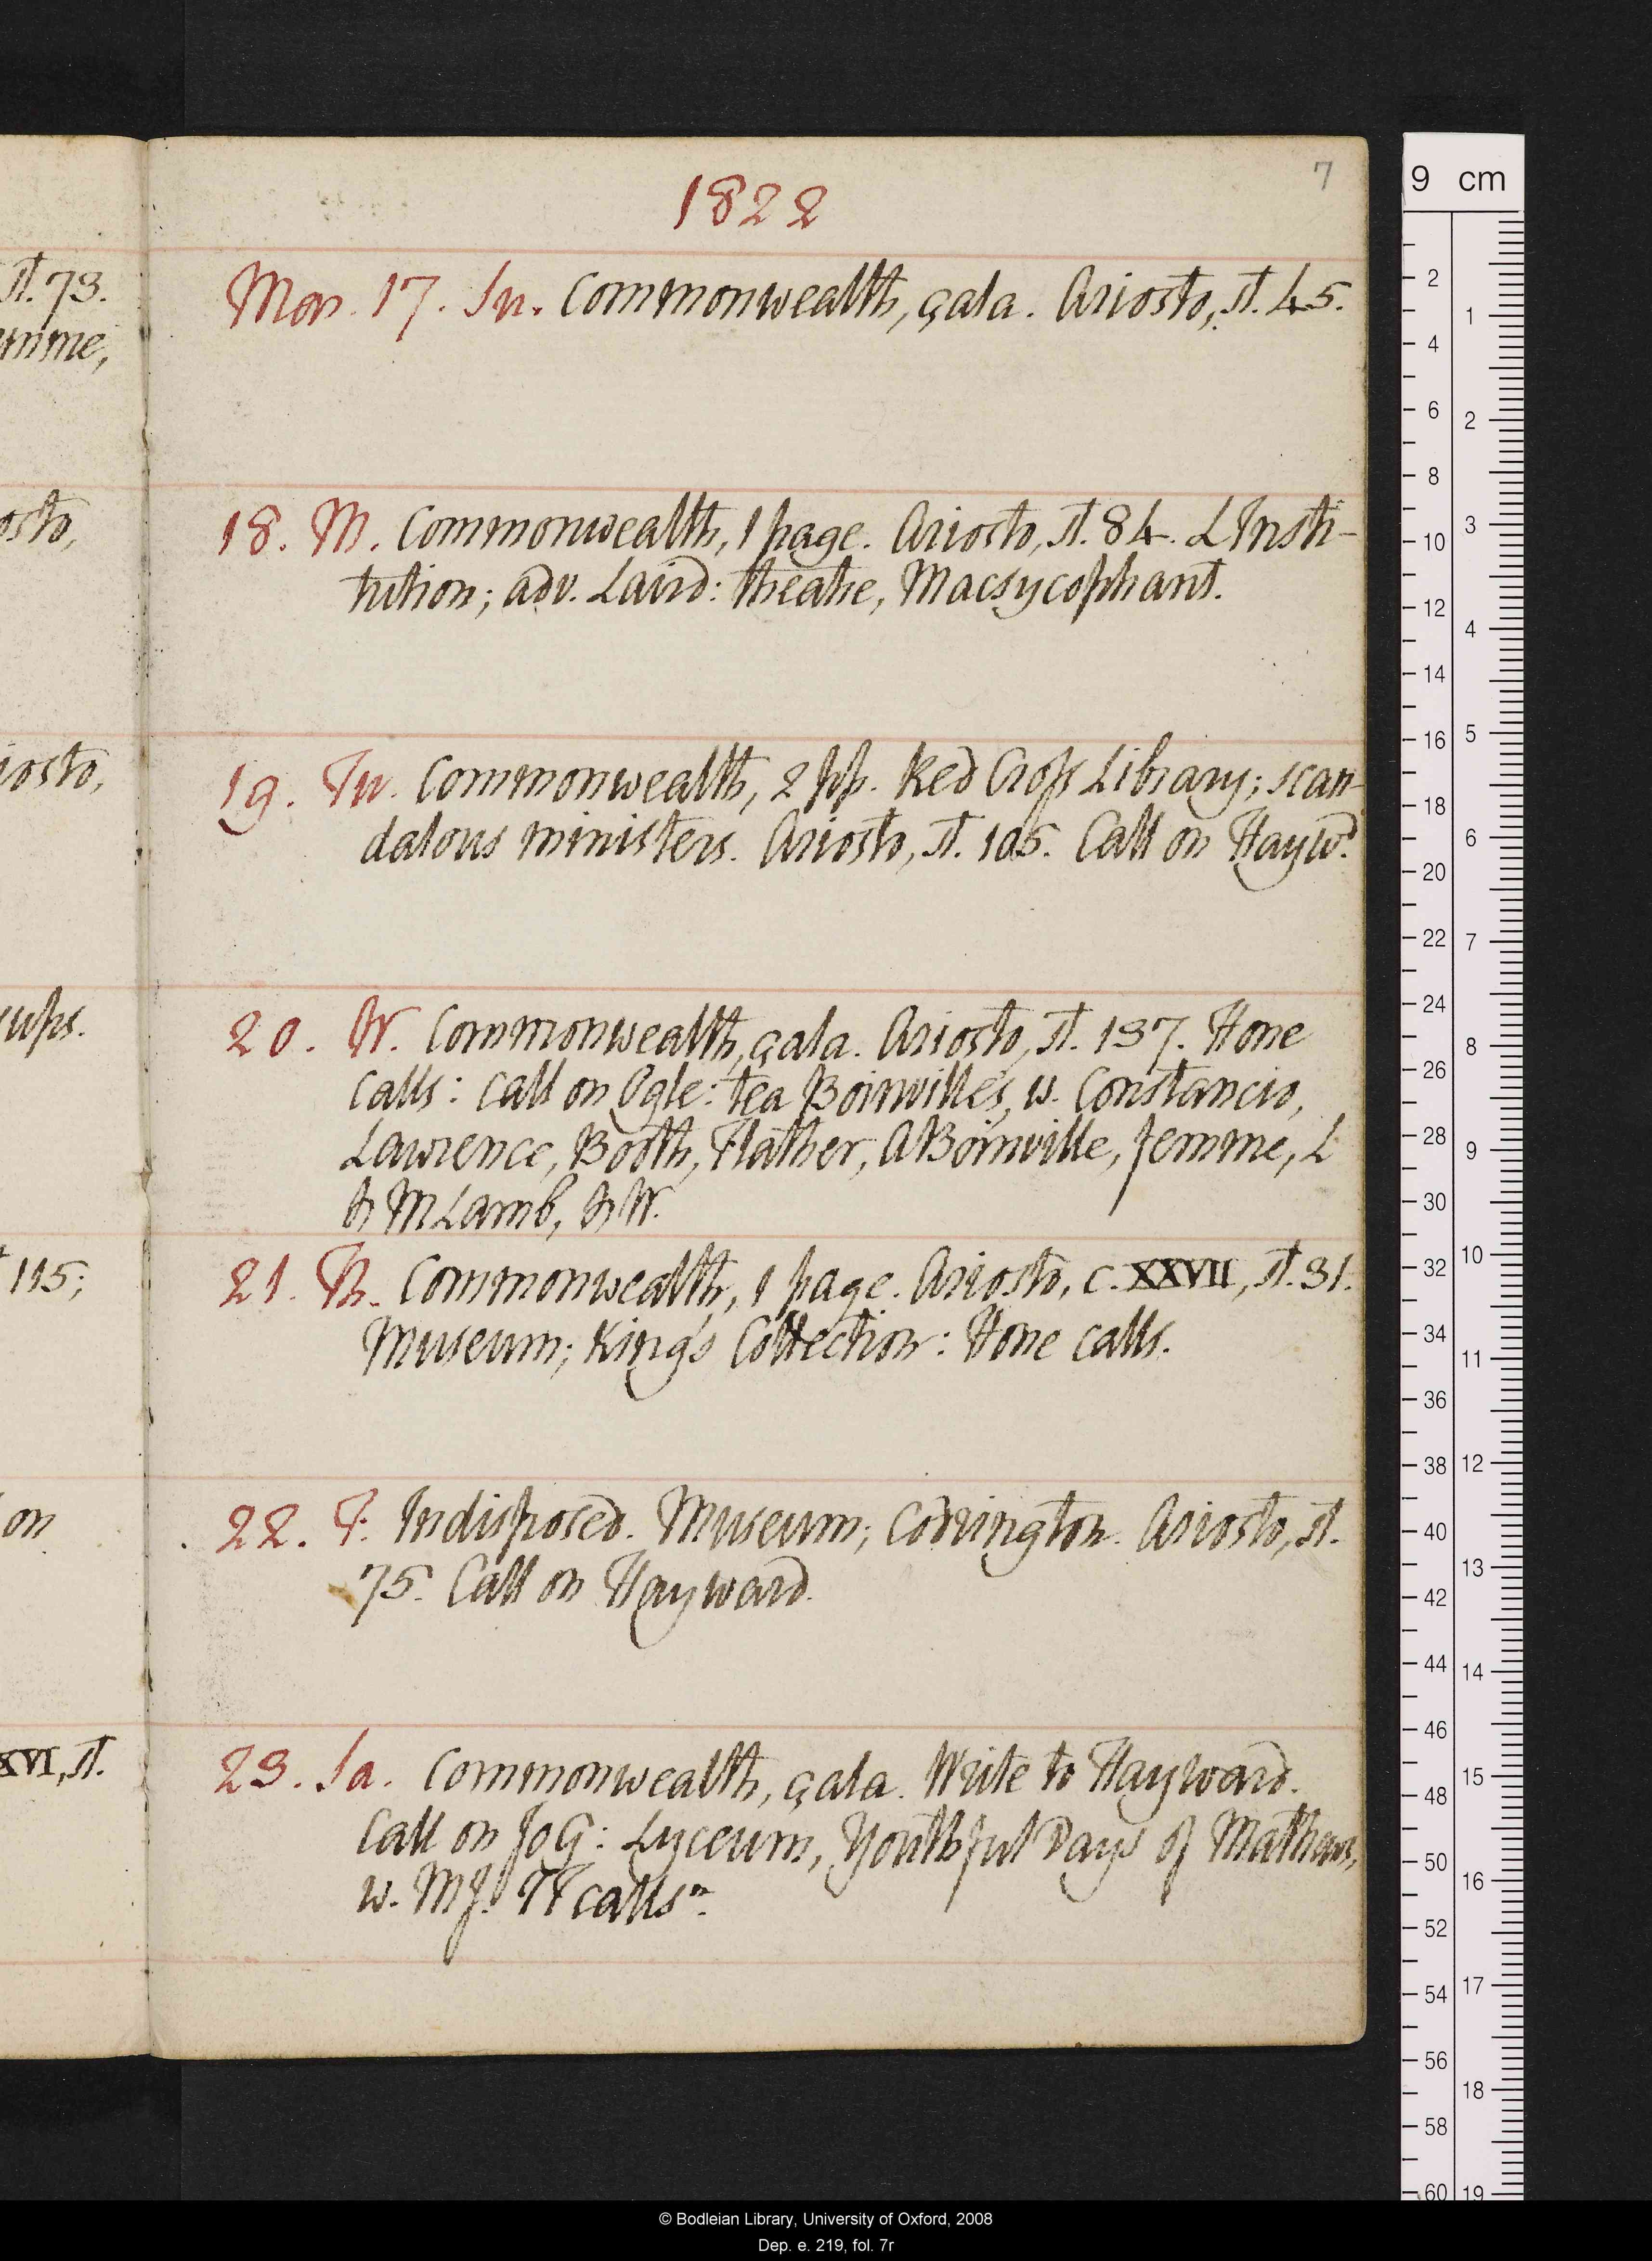 7
1822
st. 73.
Mar. 17. Su. Commonwealth, çala. Ariosto, st. 45.
emme,
osto,
18. M. Commonwealth, 1 page. Ariosto, st. 84. L Insti-
tution; adv. Laird: theatre, Macsycophant.
iosto,
19. Tu. Commonwealth, 2 pp. Red Cross Library; scan-
dalous ministers. Ariosto, st. 105. Call on Haywd.
sups.
20. W. Commonwealth, çala. Ariosto, st. 137. Hone
calls: call on Ogle: tea Boinville's, w. Constancio,
Lawrence, Booth, Flather, A Boinville, femme, L
& M Lamb, & W.
115;
21. Th. Commonwealth, 1 page. Ariosto, c. XXVII, st. 31.
Museum; King's Collection: Hone calls.
on
22. F. Indisposed. Museum; Codrington. Ariosto, st.
75. Call on Hayward.
XVI, st.
23. Sa. Commonwealth, çala. Write to Hayward.
Call on JoG: Lyceum, Youthful Days of Mathews,
w. MJ. TT calls n.
9 cm
2
1
4
6
2
8
10
3
12
4
14
16
5
18
6
20
22
7
24
8
26
28
9
30
10
32
34
11
36
38
12
40
13
42
44
14
46
15
48
50
16
52
17
54
56
18
58
60
19
© Bodleian Library, University of Oxford, 2008
Dep. e. 219, fol. 7r